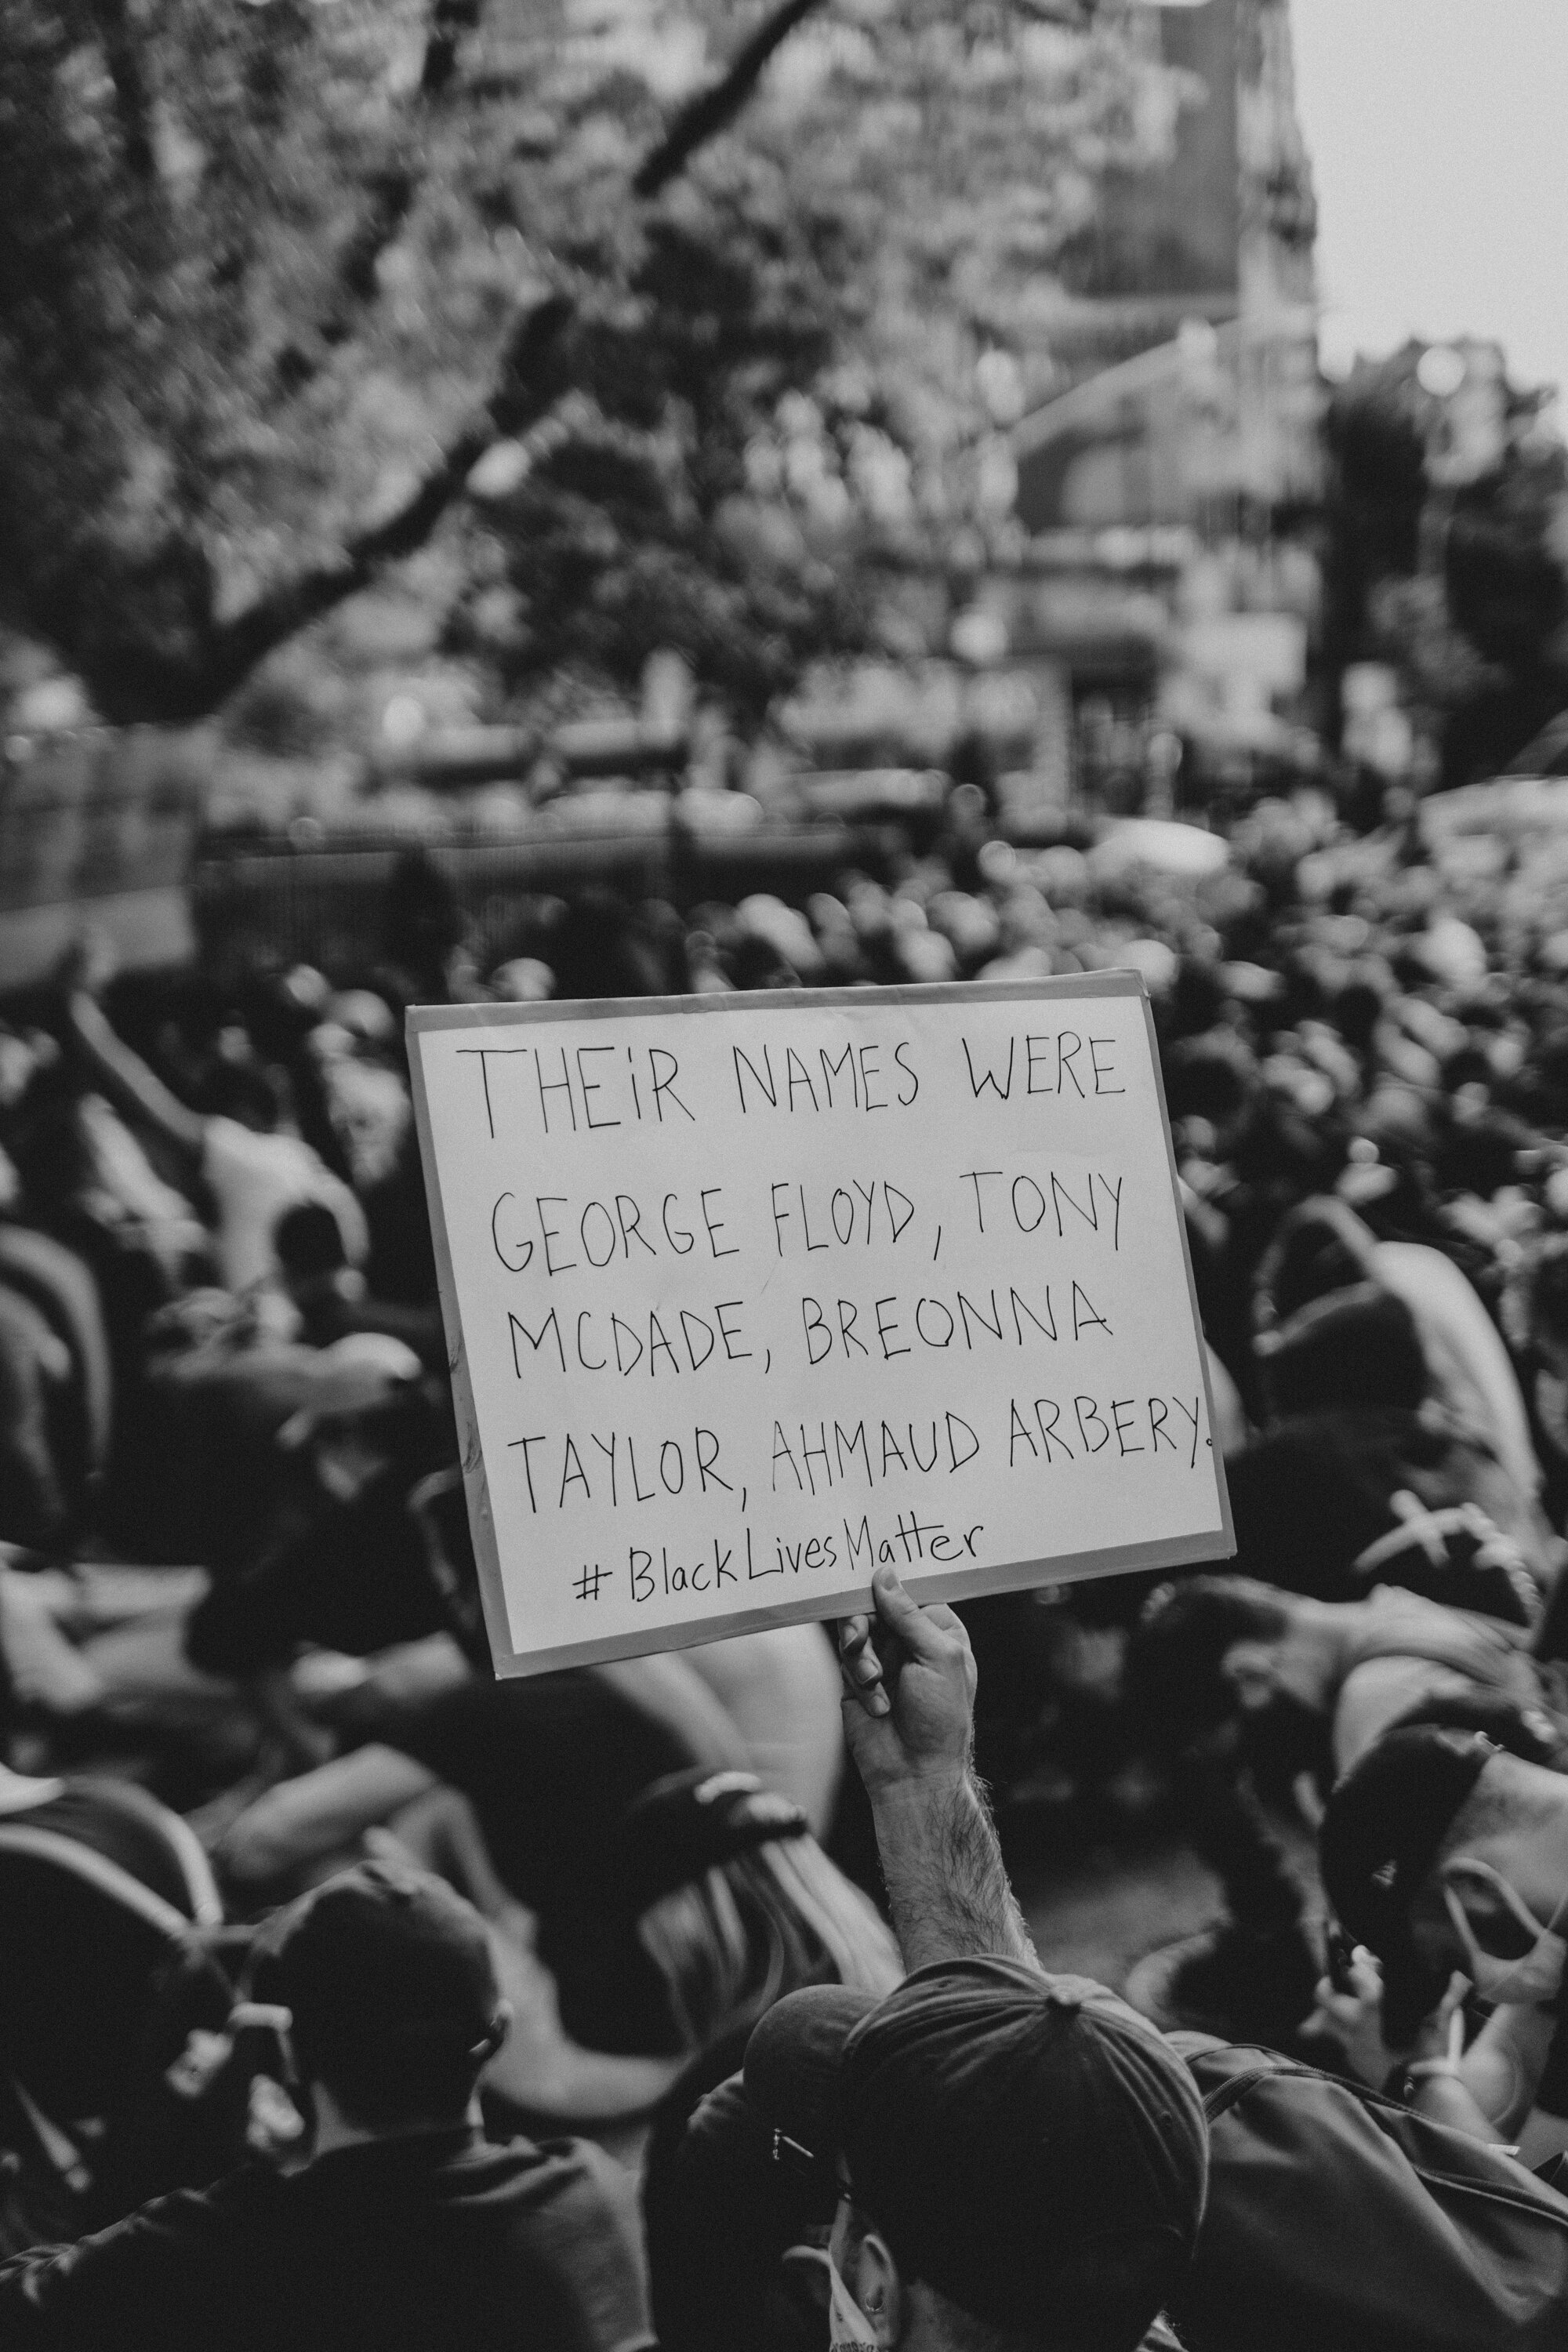 THEiR NAMES WERE
GEORGE FLOYD, TONY
MCDADE, BREONNA
TAYLOR, AHMAUD ARBERY.
# BlackLivesMatter